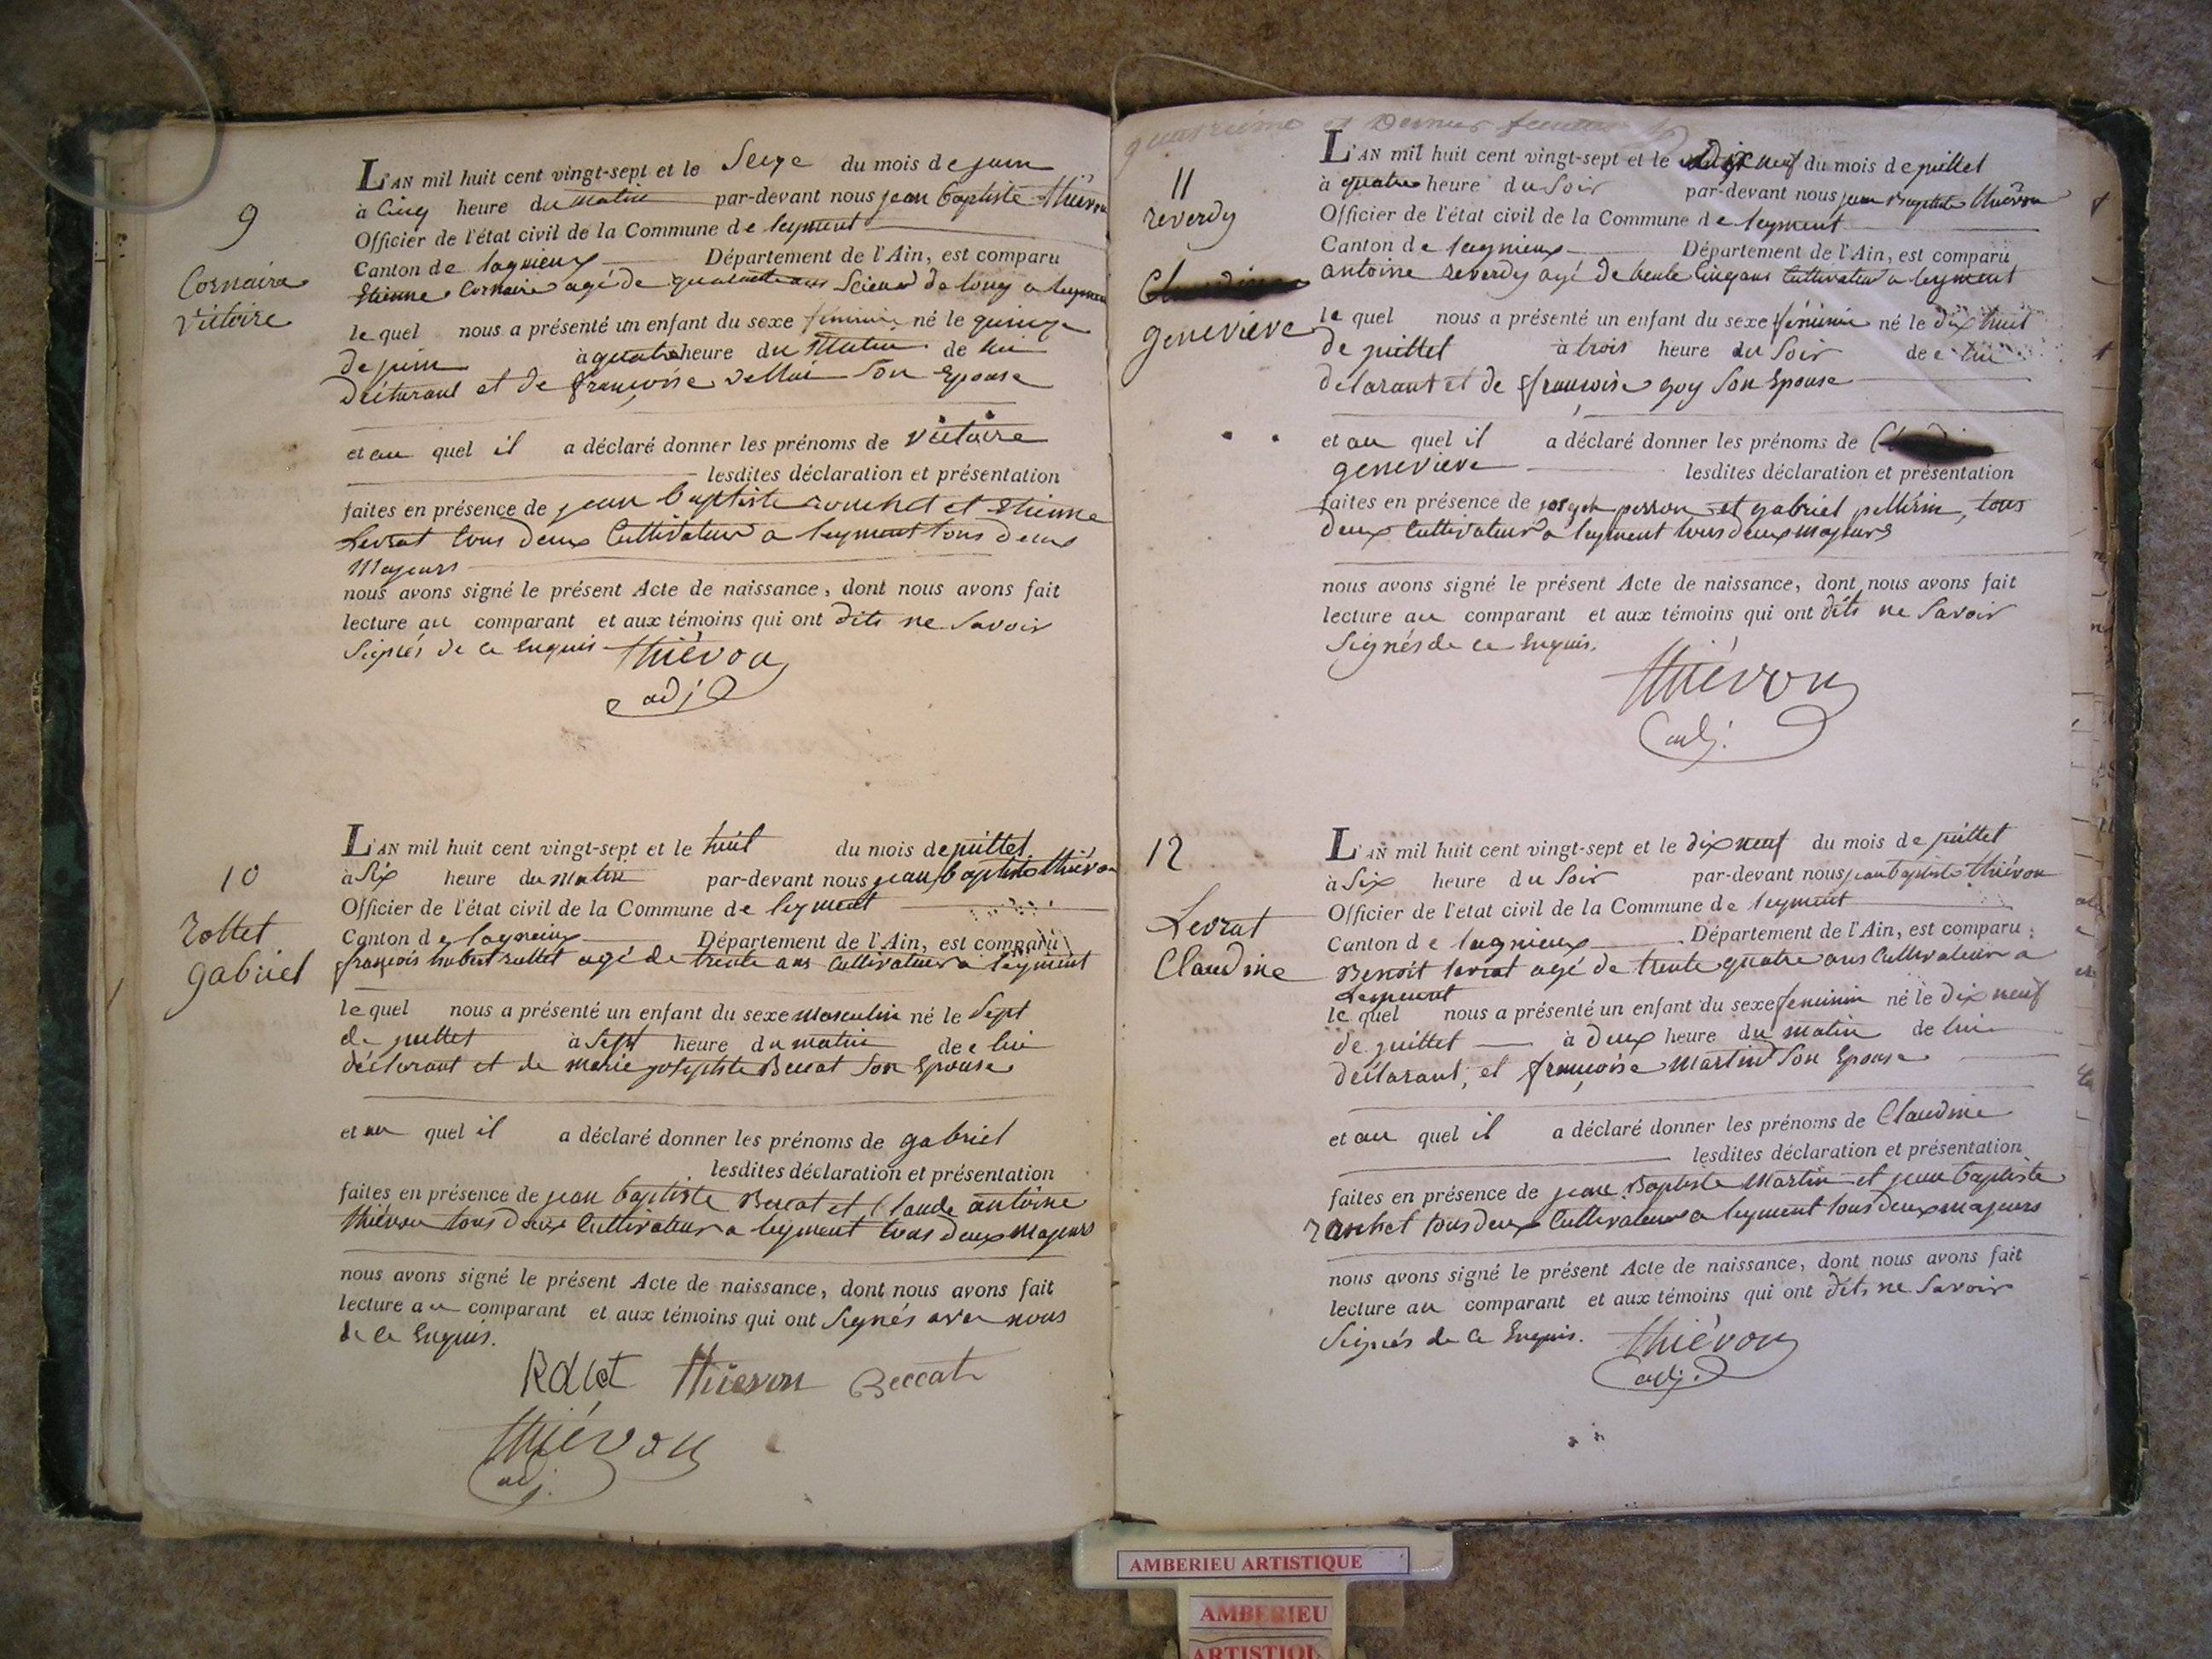 9
Cornaire
Victoire
L'AN mil huit cent vingt-sept et le Seize du mois de juin
à Cinq heure du matin par-devant nous jean baptiste thiévon
Officier de l'état civil de la Commune de leyment
Canton de lagnieux Département de l'Ain, est comparu
Etienne Cornaire agé de quarante ans Scieur de long a leyment
le quel nous a présenté un enfant du sexe feminin né le quinze
de juin à quatre heure du Matin de lui
déclarant et de françoise Son Epouse
et au quel il a déclaré donner les prénoms de victoire
lesdites déclaration et présentation
faites en présence de jean baptiste et Etienne
Levrat tous deux Cultivateur a leyment tous deux
Majeurs
nous avons signé le présent Acte de naissance, dont nous avons fait
lecture au comparant et aux témoins qui ont dits ne Savoir
Signés de ce Enquis thiévon
adj
10
rollet
gabriel
L'AN mil huit cent vingt-sept et le huit du mois de juillet
à Six heure du Matin par-devant nous jean baptiste thiévon
Officier de l'état civil de la Commune de leyment
Canton de lagnieux Département de l'Ain, est comparu
françois hubert rollet agé de trente ans Cultivateur a leyment
le quel nous a présenté un enfant du sexe masculin né le Sept
de juillet à Sept heure du matin de lui
déclarant et de marie josephte Beccat Son Epouse
et au quel il a déclaré donner les prénoms de gabriel
lesdites déclaration et présentation
faites en présence de jean baptiste Beccat et Claude antoine
thiévon tous deux Cultivateur a leyment tous deux Majeurs
nous avons signé le présent Acte de naissance, dont nous avons fait
lecture au comparant et aux témoins qui ont Signés avec nous
de ce Enquis.
Rollet thievon Beccat
thiévon
adj.
quatrième et Dernier feuillet
11
reverdy
genevieve
L'AN mil huit cent vingt-sept et le Dix neuf du mois de juillet
à quatre heure du Soir par-devant nous jean Baptiste thiévon
Officier de l'état civil de la Commune de leyment
Canton de lagnieux Département de l'Ain, est comparu
antoine reverdy agé de trente Cinq ans Cultivateur a leyment
le quel nous a présenté un enfant du sexe féminin né le dix huit
de juillet à trois heure du Soir de lui
déclarant et de françoise goy Son Epouse
et au quel il a déclaré donner les prénoms de
genevieve lesdites déclaration et présentation
faites en présence de joseph perron et gabriel pellerin, tous
deux Cultivateur a leyment tous deux majeurs
nous avons signé le présent Acte de naissance, dont nous avons fait
lecture au comparant et aux témoins qui ont dits ne Savoir
Signés de ce Enquis.
thiévon
adj.
12
Levrat
Claudine
L'AN mil huit cent vingt-sept et le dix neuf du mois de juillet
à Six heure du Soir par-devant nous jean baptiste thiévon
Officier de l'état civil de la Commune de leyment
Canton de lagnieux Département de l'Ain, est comparu
Benoit levrat agé de trente quatre ans Cultivateur a
Leyment
le quel nous a présenté un enfant du sexe feminin né le dix neuf
de juillet à deux heure du matin de lui
déclarant, et françoise Martin Son Epouse
et au quel il a déclaré donner les prénoms de Claudine
lesdites déclaration et présentation
faites en présence de jean Baptiste Martin et jean baptiste
tous deux Cultivateur a leyment tous deux majeurs
nous avons signé le présent Acte de naissance, dont nous avons fait
lecture au comparant et aux témoins qui ont dits ne Savoir
Signés de ce Enquis. thiévon
adj.
AMBERIEU ARTISTIQUE
AMBERIEU
ARTISTIQU